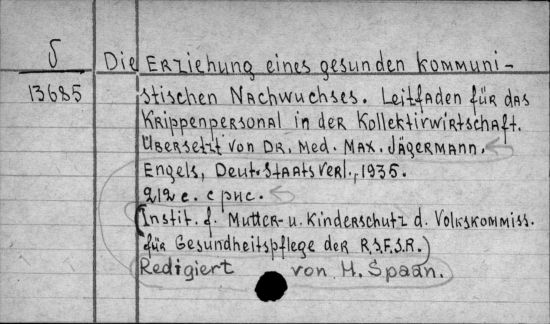 5 Die Erziehung eines gesunden kommuni-
13685 stischen Nachwuchses. Leitfaden für das
Krippenpersonal in der Kollektivwirtschaft.
Übersetzt von Dr. Med. Max. Jägermann.
Engels, Deut. Staatsverl., 1935.
212 с. с рис.
(Instit. f. Mutter- u. Kinderschutz d. Volkskommiss.
für Gesundheitspflege der R.S.F.S.R.)
Redigiert von M. Spaan.